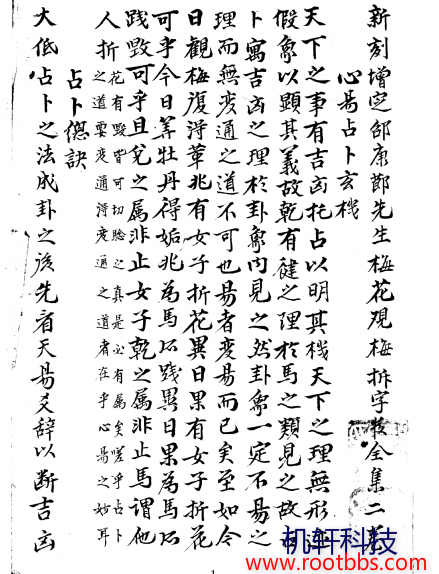 新刻增定邵康節先生梅花观梅拆字数全集二卷
心易占卜玄機
天下之事有吉凶托占以明其機天下之理無形迹
假象以顕其義故乾有健之理於馬之類見之故
卜寓吉凶之理於卦象内見之然卦象一定不易之
理而無变通之道不可也易者变易而已矣至如今
日觀梅復得革兆有女子折花異日果有女子折花
可乎今日筭牡丹得姤兆為馬所踐異日果為馬所
踐毁可乎且兌之属非止女子乾之属非止馬謂他
人折花有毁皆可切驗之真是必有属矣嗟乎占卜
之道要变通得变通之道者在乎心易之妙耳
占卜揔訣
大低占卜之法成卦之後先看天易爻辞以断吉凶
机轩科技
www.rootbbs.com